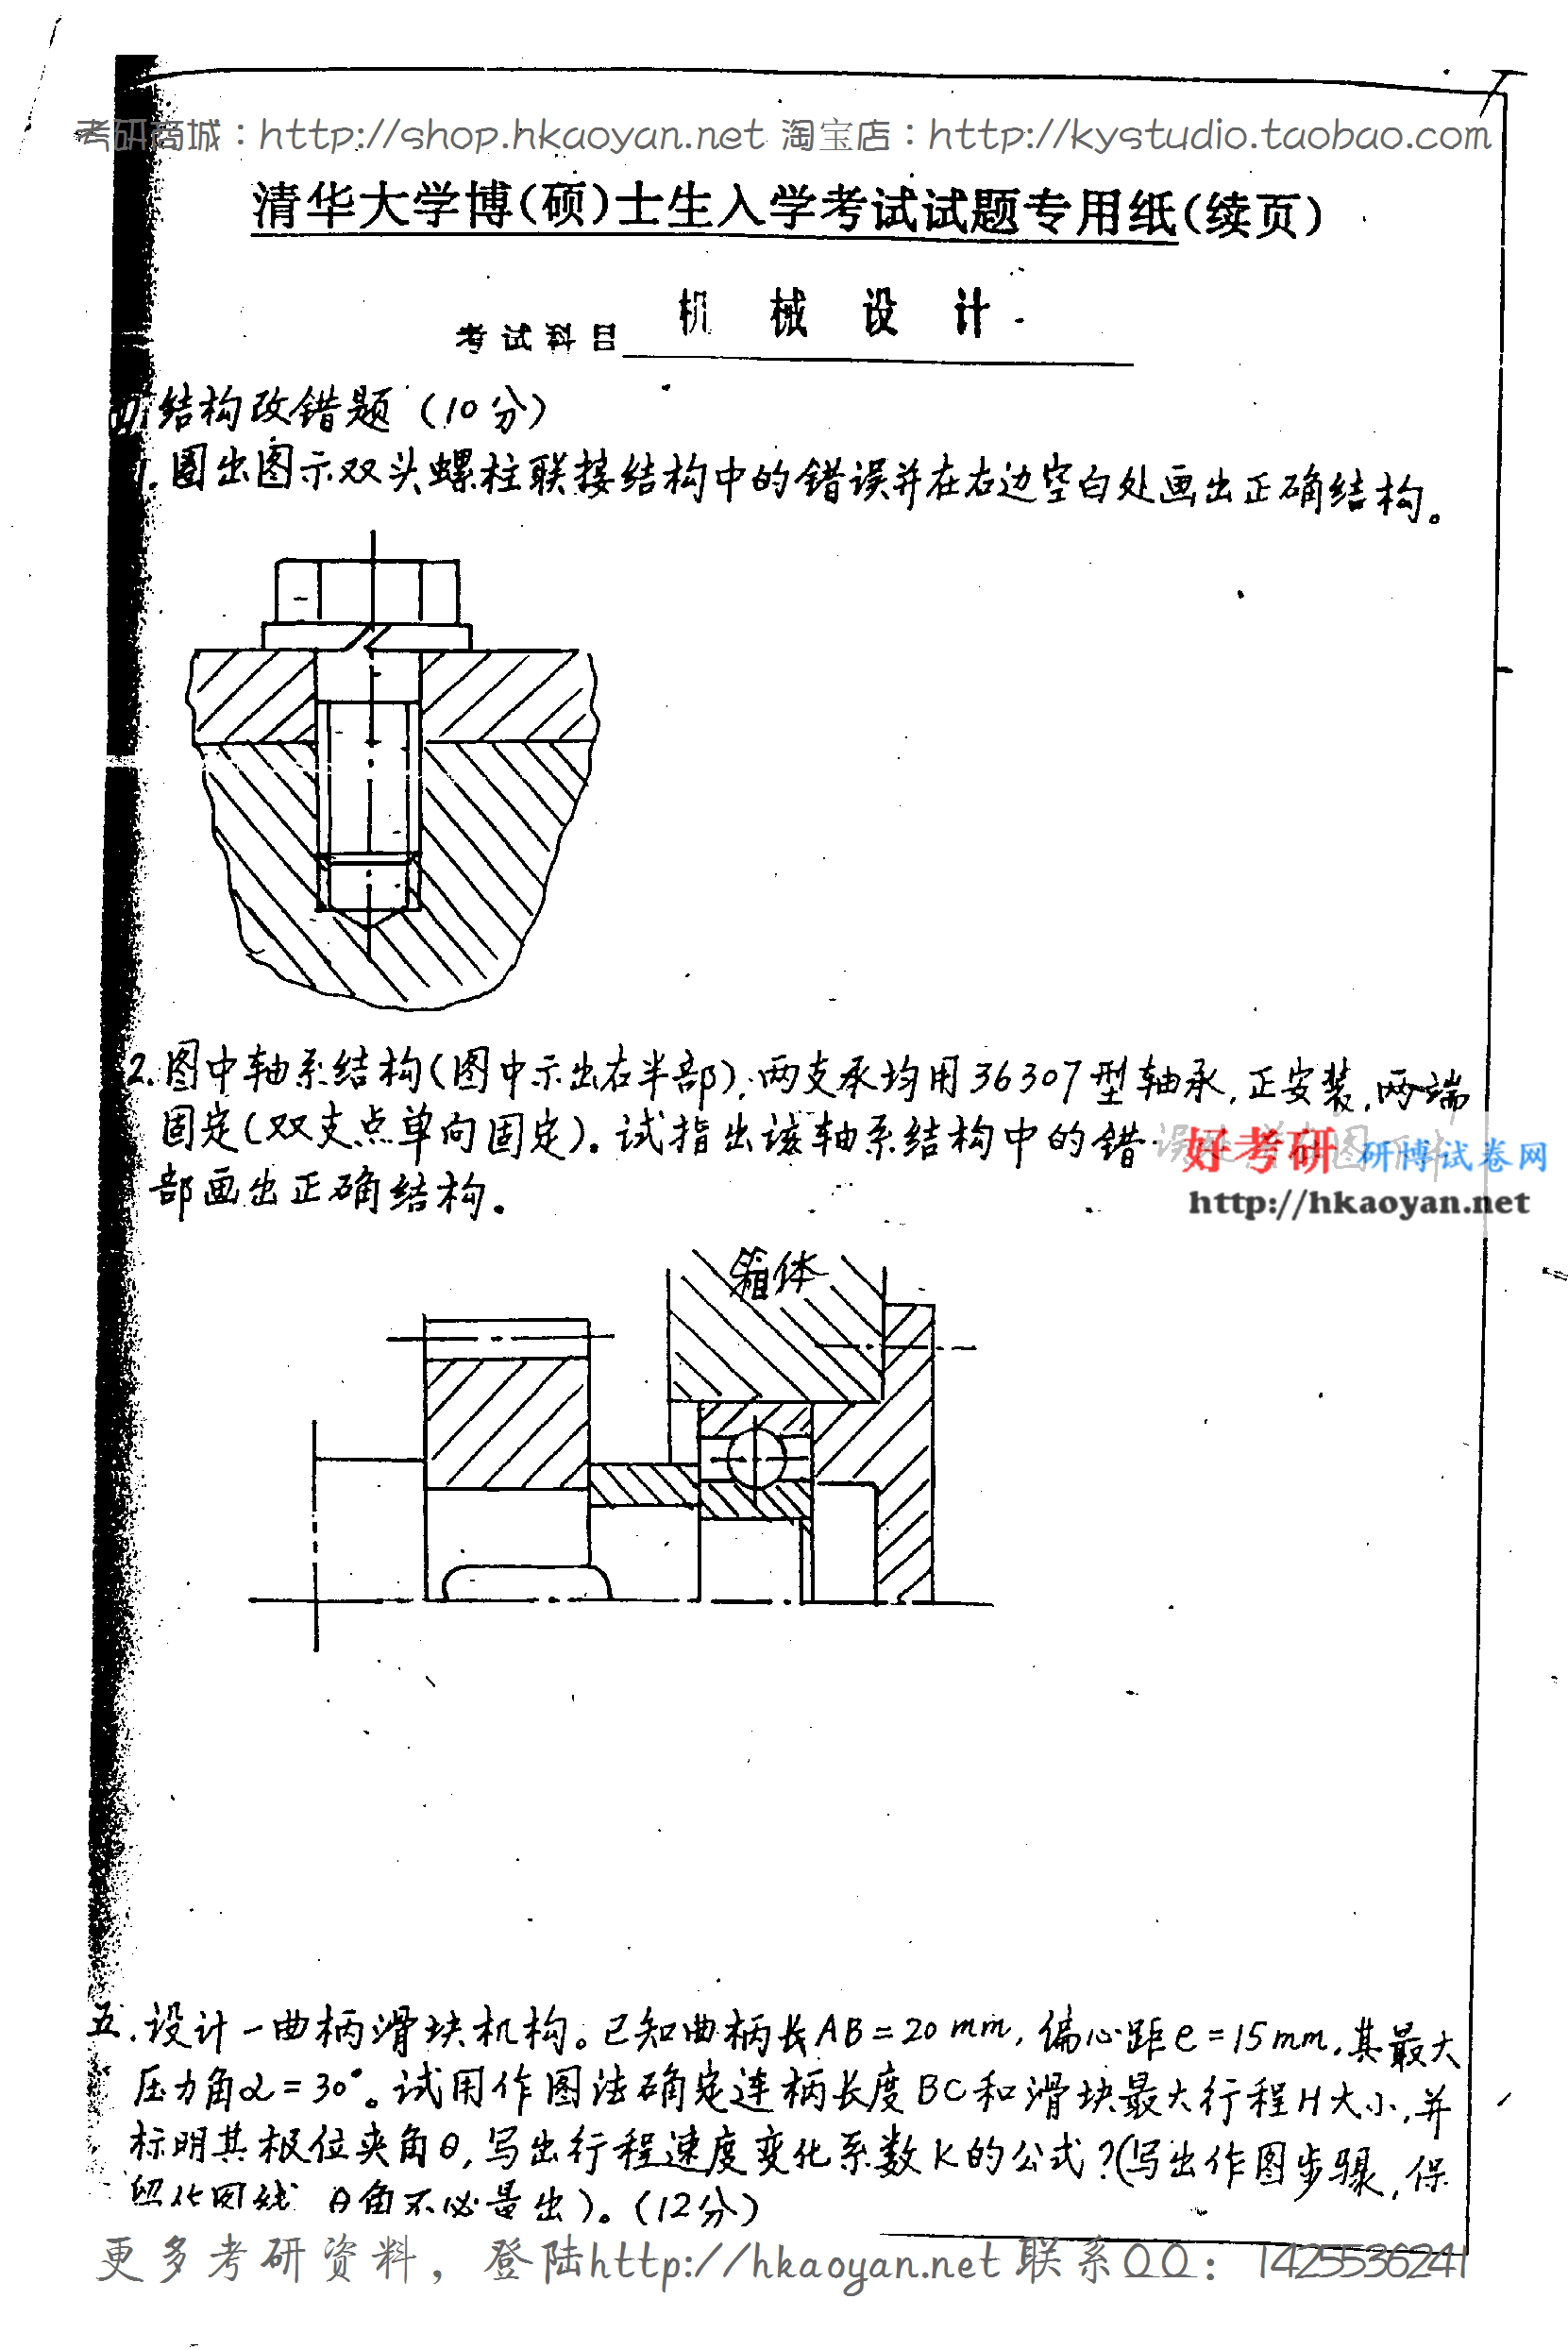 考研商城：http://shop.hkaoyan.net 淘宝店：http://kystudio.taobao.com
清华大学博(硕)士生入学考试试题专用纸(续页)
考试科目 机械设计
四.结构改错题（10分）
1.圈出图示双头螺柱联接结构中的错误并在右边空白处画出正确结构。
2.图中轴系结构(图中示出右半部),两支承均用36307型轴承,正安装,两端
固定(双支点单向固定)。试指出该轴系结构中的错
好考研 研博试卷网
部画出正确结构。
http://hkaoyan.net
箱体
五.设计一曲柄滑块机构。已知曲柄长AB=20mm,偏心距e=15mm,其最大
压力角α=30°。试用作图法确定连柄长度BC和滑块最大行程H大小,并
标明其极位夹角θ,写出行程速度变化系数K的公式?(写出作图步骤,保
θ角不必量出)。(12分)
更多考研资料，登陆http://hkaoyan.net 联系QQ：1425536241